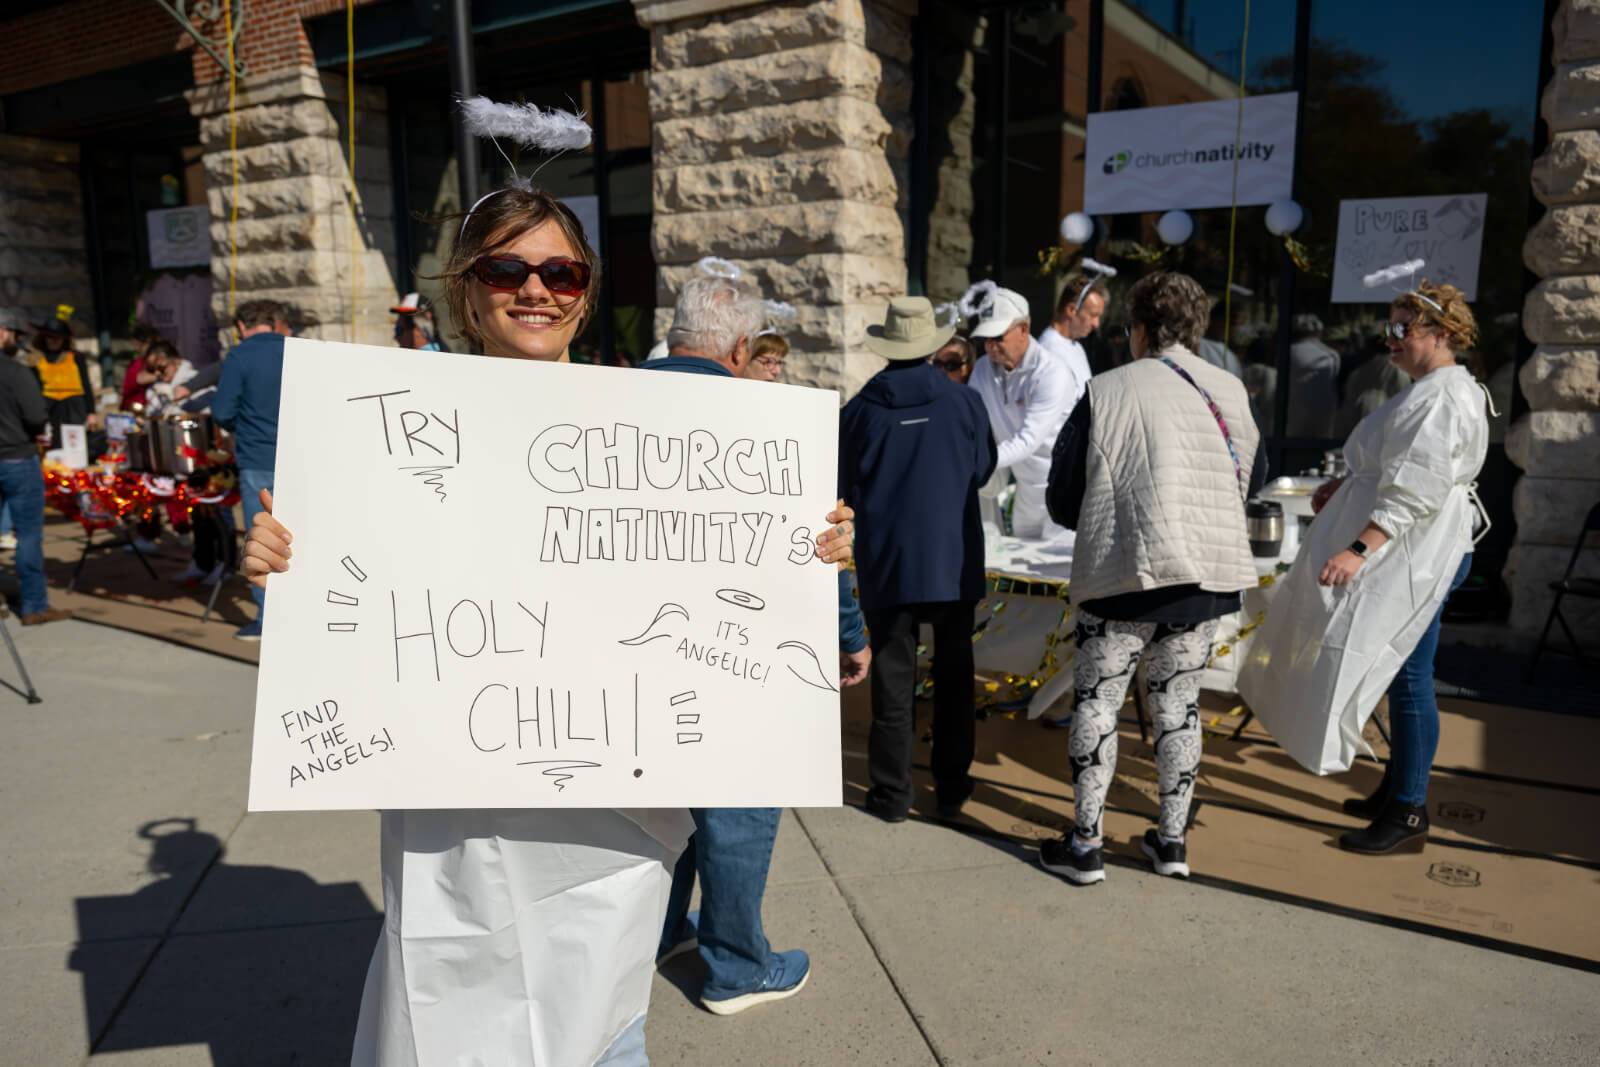 TRY
CHURCH
NATIVITY'S
HOLY
CHILI!
IT'S
ANGELIC!
FIND
THE
ANGELS!
churchnativity
PURE